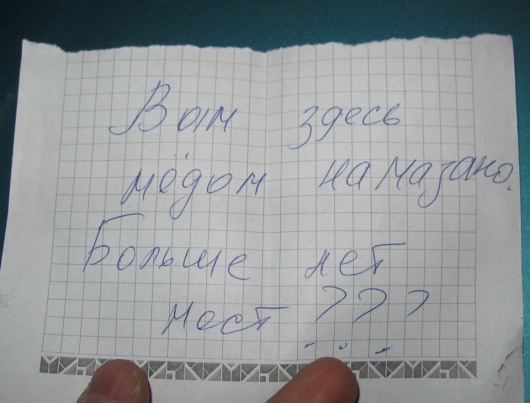 Вам здесь
мёдом намазано.
Больше нет
мест ???